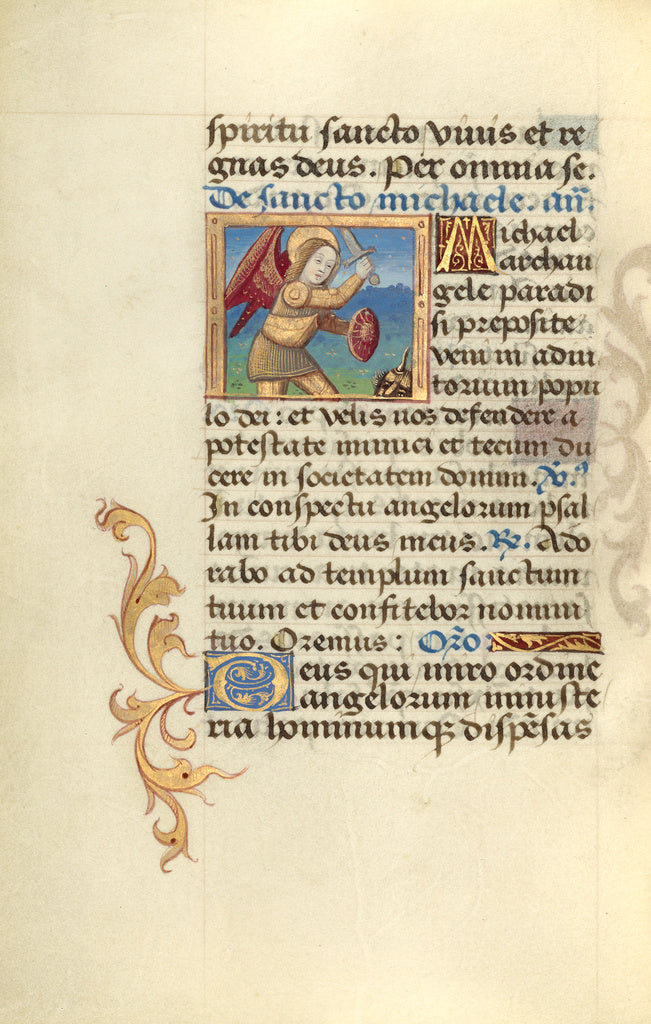 spiritu sancto viuis et re
gnas deus. Per omnia se.
De sancto michaele. añ.
Michael
archan
gele paradi
si preposite
veni in adiu
torium popu
lo dei: et velis nos defendere a
potestate inimici et tecum du
cere in societatem domini. V̾.
In conspectu angelorum psal
lam tibi deus meus. R̾. Ado
rabo ad templum sanctum
tuum et confitebor nomini
tuo. Oremus: Or̃o:
Deus qui miro ordine
angelorum ministe
ria hominumqꝫ dispẽsas